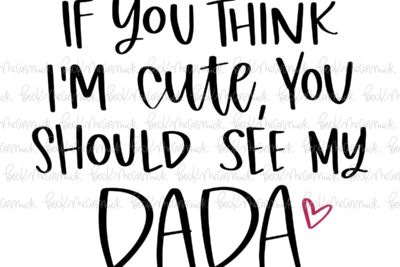 IF YOU THINK
I'M cute, YOU
SHOULD SEE MY
DADA